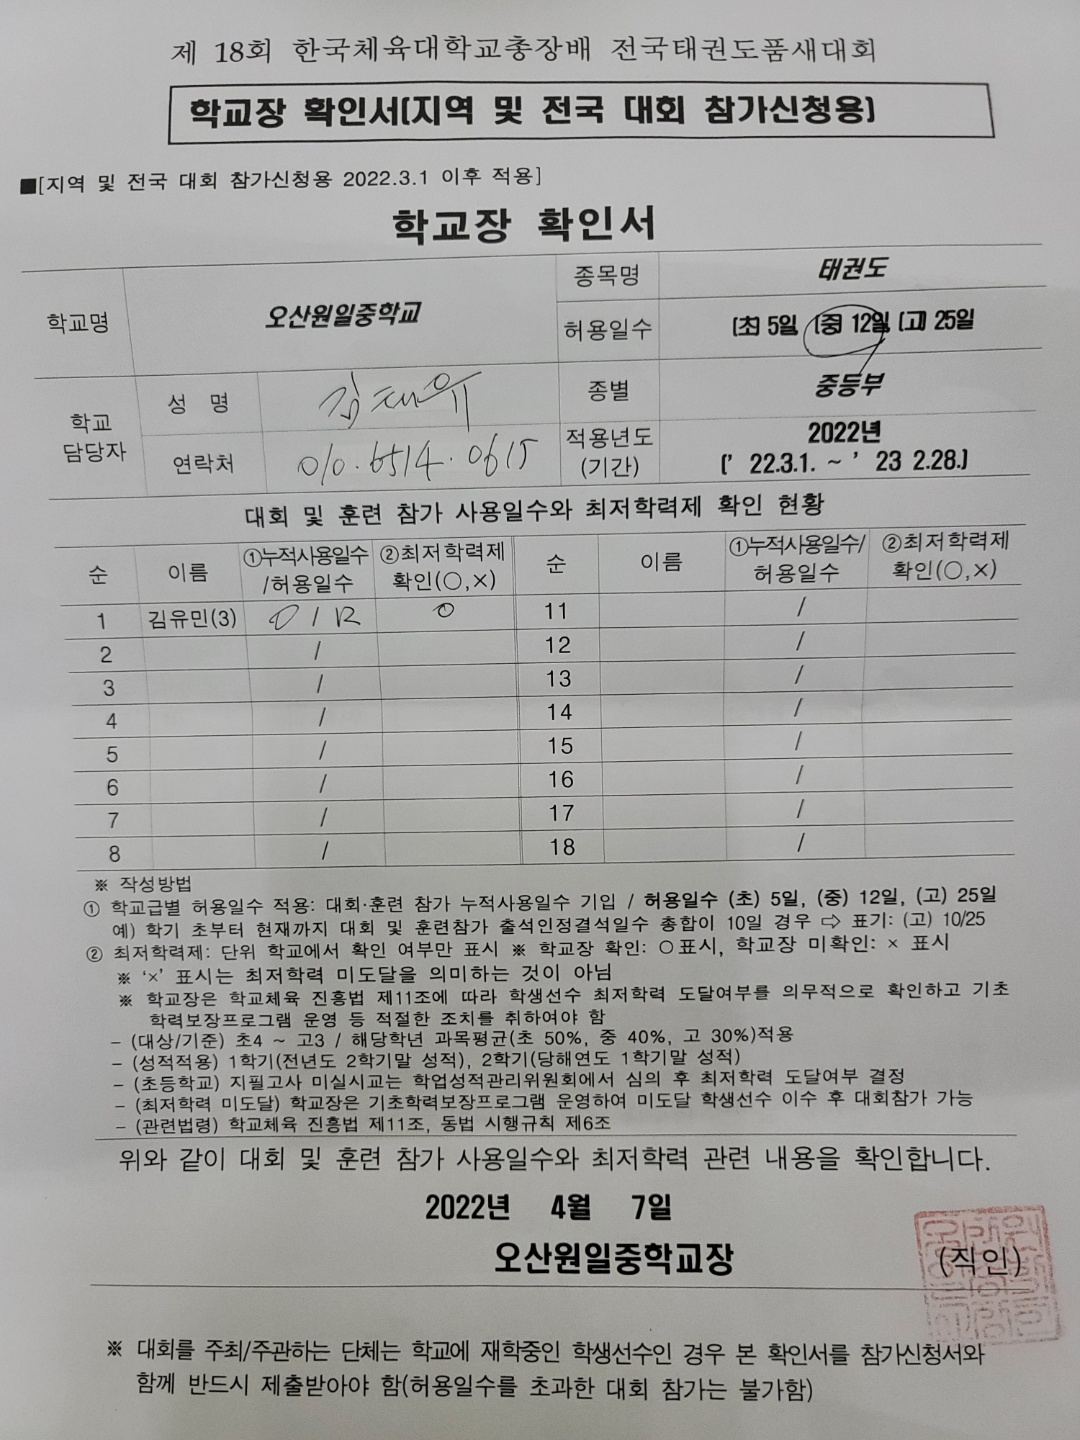 제 18회 한국체육대학교총장배 전국태권도품새대회
학교장 확인서(지역 및 전국 대회 참가신청용)
■[지역 및 전국 대회 참가신청용 2022.3.1 이후 적용]
학교장 확인서
학교명 오산원일중학교 종목명 태권도
허용일수 (초) 5일, (중) 12일, (고) 25일
학교 담당자 성 명 김재유 종별 중등부
연락처 010.6514.0615 적용년도 (기간) 2022년
(' 22.3.1. ~ ' 23 2.28.)
대회 및 훈련 참가 사용일수와 최저학력제 확인 현황
순 이름 ①누적사용일수/허용일수 ②최저학력제 확인(○,×) 순 이름 ①누적사용일수/허용일수 ②최저학력제 확인(○,×)
1 김유민(3) 0 / 12 ○ 11 /
2 / 12 /
3 / 13 /
4 / 14 /
5 / 15 /
6 / 16 /
7 / 17 /
8 / 18 /
※ 작성방법
① 학교급별 허용일수 적용: 대회·훈련 참가 누적사용일수 기입 / 허용일수 (초) 5일, (중) 12일, (고) 25일
예) 학기 초부터 현재까지 대회 및 훈련참가 출석인정결석일수 총합이 10일 경우 ⇨ 표기: (고) 10/25
② 최저학력제: 단위 학교에서 확인 여부만 표시 ※ 학교장 확인: ○표시, 학교장 미확인: × 표시
※ '×' 표시는 최저학력 미도달을 의미하는 것이 아님
※ 학교장은 학교체육 진흥법 제11조에 따라 학생선수 최저학력 도달여부를 의무적으로 확인하고 기초
학력보장프로그램 운영 등 적절한 조치를 취하여야 함
- (대상/기준) 초4 ~ 고3 / 해당학년 과목평균(초 50%, 중 40%, 고 30%)적용
- (성적적용) 1학기(전년도 2학기말 성적), 2학기(당해연도 1학기말 성적)
- (초등학교) 지필고사 미실시교는 학업성적관리위원회에서 심의 후 최저학력 도달여부 결정
- (최저학력 미도달) 학교장은 기초학력보장프로그램 운영하여 미도달 학생선수 이수 후 대회참가 가능
- (관련법령) 학교체육 진흥법 제11조, 동법 시행규칙 제6조
위와 같이 대회 및 훈련 참가 사용일수와 최저학력 관련 내용을 확인합니다.
2022년 4월 7일
오산원일중학교장 (직인)
※ 대회를 주최/주관하는 단체는 학교에 재학중인 학생선수인 경우 본 확인서를 참가신청서와
함께 반드시 제출받아야 함(허용일수를 초과한 대회 참가는 불가함)